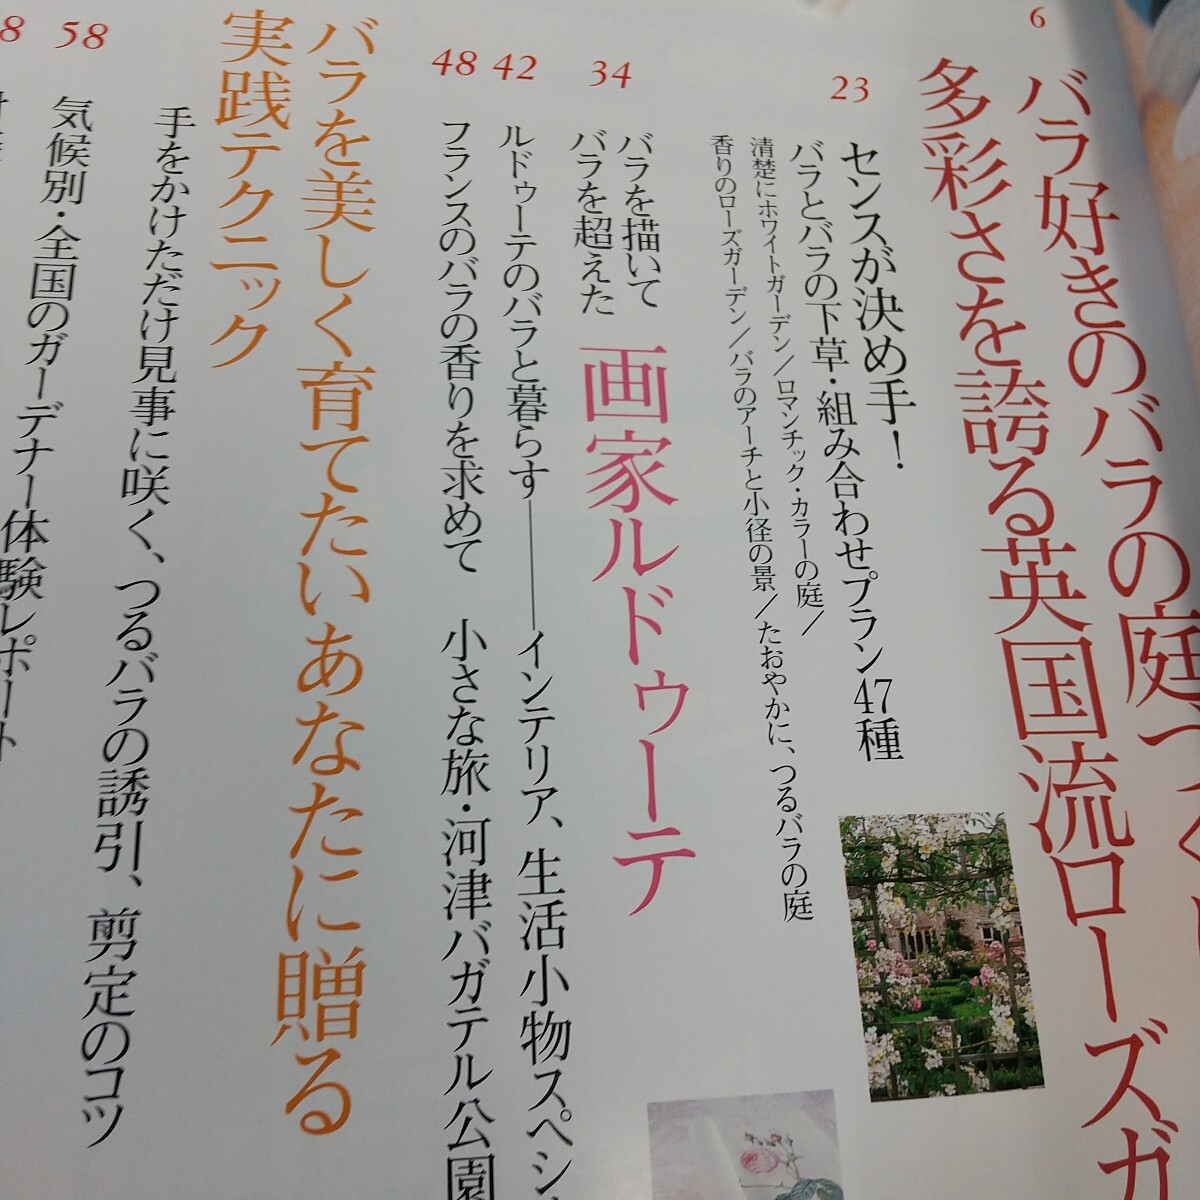 6
バラ好きのバラの庭づくり
多彩さを誇る英国流ローズガ
23
センスが決め手！
バラとバラの下草・組み合わせプラン47種
清楚にホワイトガーデン／ロマンチック・カラーの庭／
香りのローズガーデン／バラのアーチと小径の景／たおやかに、つるバラの庭
34
バラを描いて
バラを超えた
画家ルドゥーテ
42
ルドゥーテのバラと暮らす――インテリア、生活小物スペシ
48
フランスのバラの香りを求めて 小さな旅・河津バガテル公園
バラを美しく育てたいあなたに贈る
実践テクニック
58
手をかけただけ見事に咲く、つるバラの誘引、剪定のコツ
8
気候別・全国のガーデナー体験レポート